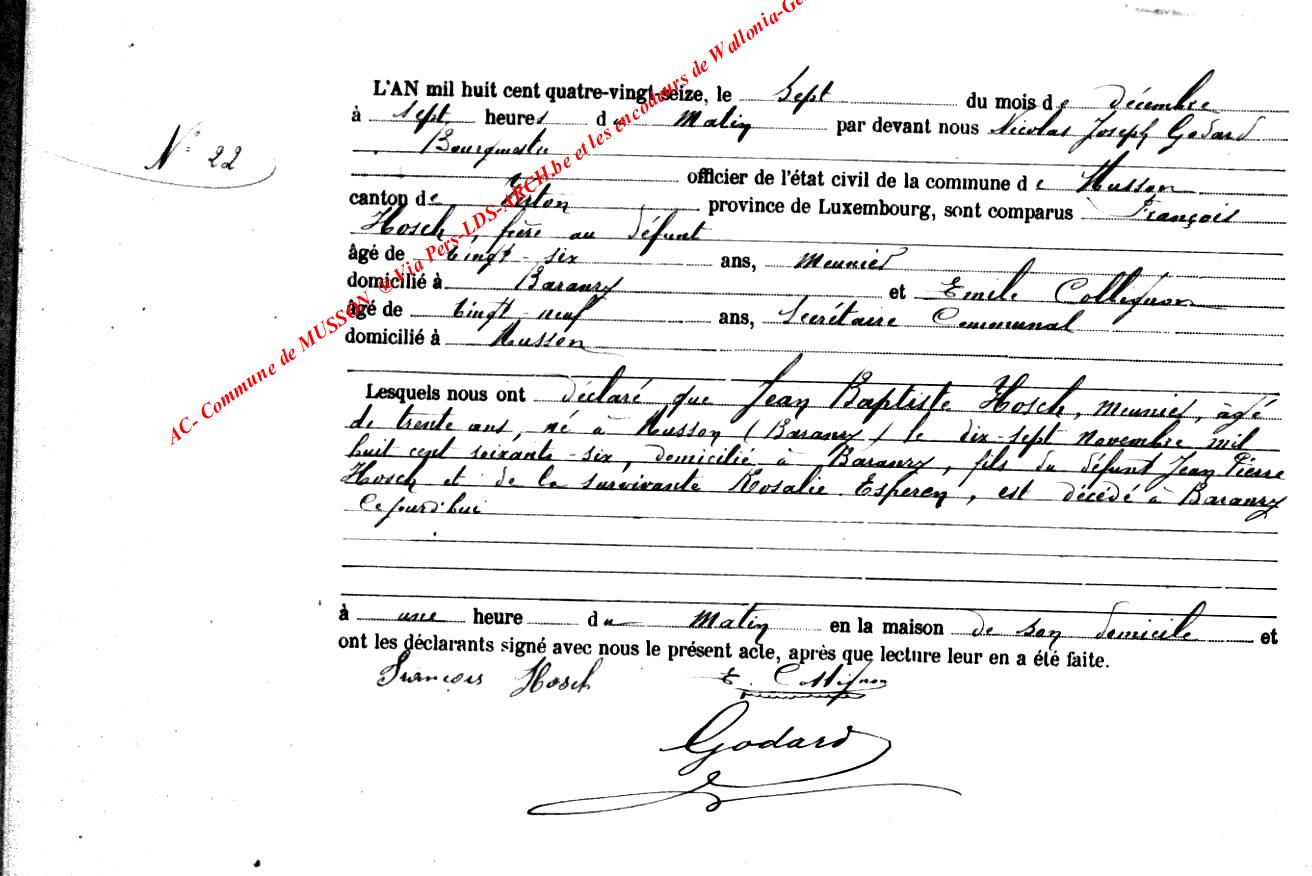 L'AN mil huit cent quatre-vingt-seize, le Sept du mois de décembre
à Sept heures du Matin par devant nous Nicolas Joseph Godard
Bourgmestre
N° 22
officier de l'état civil de la commune de Musson
canton de Virton province de Luxembourg, sont comparus François
Hosch, frère au défunt
âgé de vingt-six ans, Meunier
domicilié à Baranzy et Emile Collignon
âgé de vingt neuf ans, Secrétaire Communal
domicilié à Musson
Lesquels nous ont déclaré que Jean Baptiste Hosch, meunier, âgé
de trente ans, né à Musson (Baranzy) le dix-sept novembre mil
huit cent soixante-six, domicilié à Baranzy, fils du défunt Jean Pierre
Hosch et de la survivante Rosalie Esperen, est décédé à Baranzy
Cejourd'hui
à une heure du Matin en la maison de son domicile et
ont les déclarants signé avec nous le présent acte, après que lecture leur en a été faite.
François Hosch E. Collignon
Godard
AC- Commune de MUSSON ® Via Pers-LDS-ARCH.be et les encodeurs de Wallonia-Ge